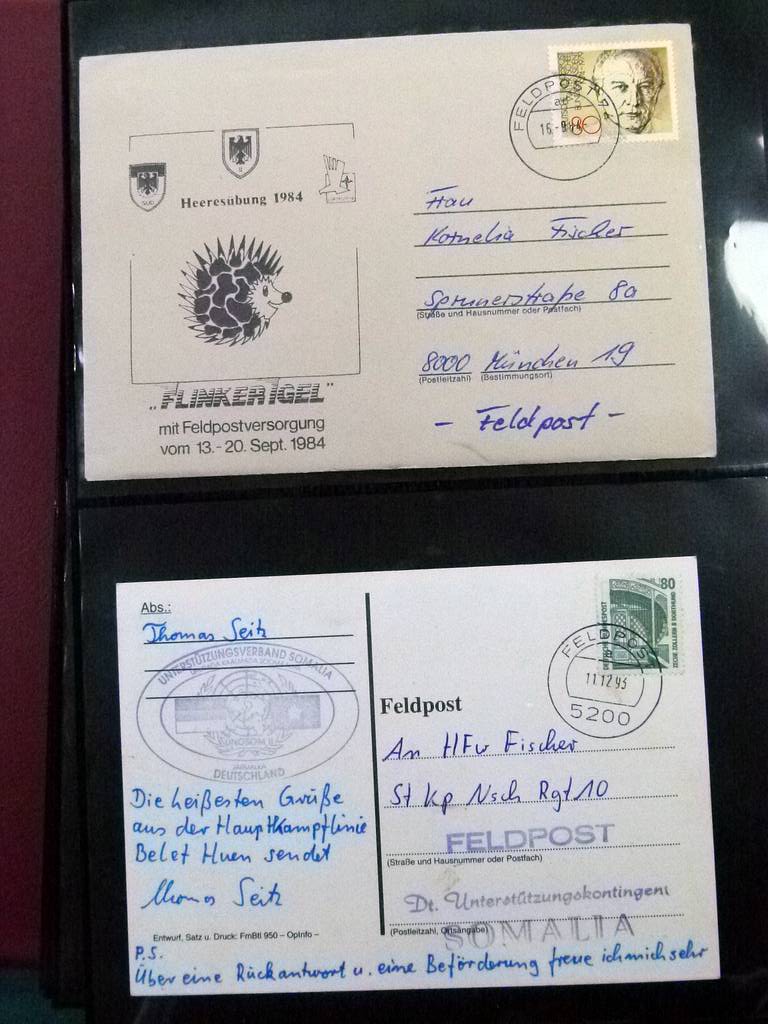 FELDPOST 74
80
Heeresübung 1984
Frau
Kornelia Fischer
Sprunerstraße 8a
(Straße und Hausnummer oder Postfach)
8000 München 19
(Postleitzahl) (Bestimmungsort)
- Feldpost -
„FLINKER IGEL"
mit Feldpostversorgung
vom 13.-20. Sept. 1984
Abs.:
Thomas Seitz
UNTERSTÜTZUNGSVERBAND SOMALIA
UNOSOM II
DEUTSCHLAND
80
DEUTSCHE BUNDESPOST
ZECHE ZOLLERN II DORTMUND
FELDPOST
11.12.93
5200
Feldpost
An HFw Fischer
St Kp Nsch Rgt 10
FELDPOST
(Straße und Hausnummer oder Postfach)
Dt. Unterstützungskontingent
(Postleitzahl, Ortsangabe)
SOMALIA
Die heißesten Grüße
aus der Hauptkampflinie
Belet Huen sendet
Thomas Seitz
Entwurf, Satz u. Druck: FmBtl 950 – OpInfo –
P.S.
Über eine Rückantwort u. eine Beförderung freue ich mich sehr